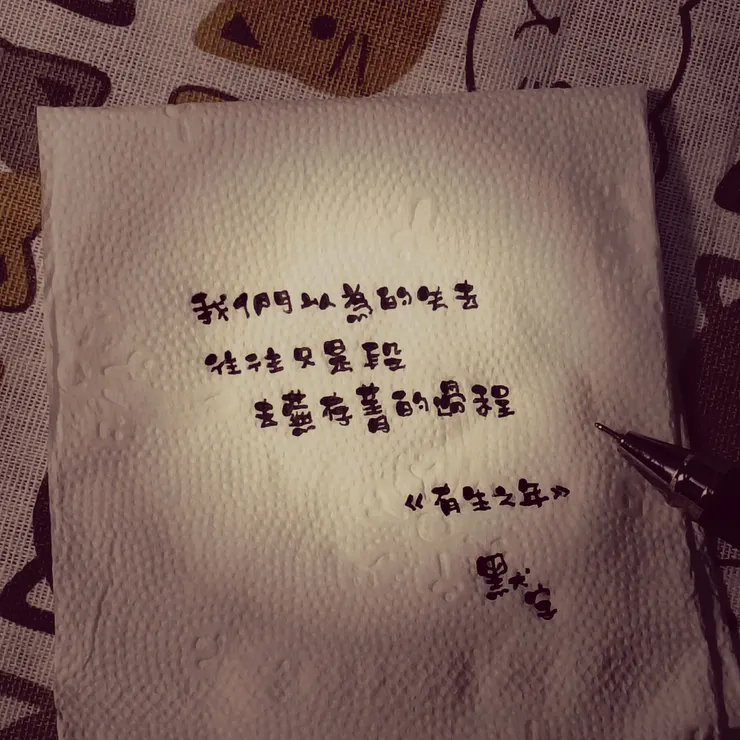 我們以為的失去
往往只是段
去蕪存菁的過程
《有生之年》
黑犬宝